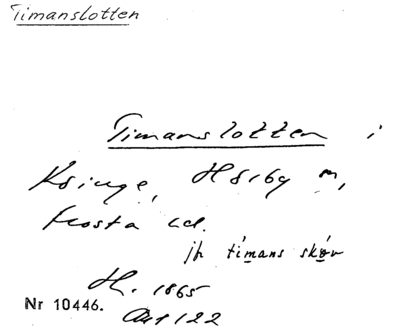 Timanslotten
Timanslotten i
Ksinge, H8rby m,
Frosta hd.
jh timans skov
H. 1865
Nr 10446.
122